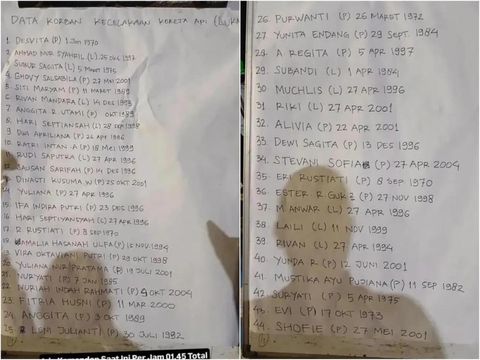 DATA KORBAN KECELAKAAN KERETA API
1. DESVITA (P) 1 Jan 1970
2. AHMAD NUR SYAHRIL (L) 25 OKT 1997
SUBUR SAGITA (L) 5 MARET 1975
4. GHOVY SALSABILA (P) 27 MEI 2001
5. SITI MARYAM (P) 11 MARET 1989
6. RIVAN MANDARA (L) 14 DES 1993
7. ANGGITA R. UTAMI (P) OKT 1989
8. HARI SEPTIANSAH (L) 28 SEP 1998
9. DWI APRILIANA (P) 22 APR 1996
10. RATRI INTAN A (P) 18 MEI 1999
11. RUDI SAPUTRA (L) 27 APR 1996
12. SAUSAN SARIFAH (P) 14 DES 1996
DINASTI KUSUMA W (P) 25 OKT 2001
14. YULIANA (P) 27 APR 1996
15. IFA INDIRA PUTRI (P) 23 DES 1996
16. HARI SEPTIYANSYAH (L) 27 APR 1996
17. R. RUSTIATI (P) 8 SEP 1970
18. KAMALIA HASANAH ULFA (P) 16 NOV 1994
VIRA OKTAVIAN PUTRI (P) 29 OKT 1998
YULIANA NUR PRATAMA (P) 19 JULI 2001
21. NURYATI (P) 7 JAN 1985
22. NURIAH INDAH RAHMATI (P) 4 OKT 2004
23. FITRIA HUSNI (P) 11 MAR 2000
24. ANGGITA (P) 3 OKT 1989
25. R LENI JULIANTI (P) 30 JULI 1982
Saat Ini Per Jam 01.45 Total
26. PURWANTI (P) 26 MARET 1972
27. YUNITA ENDANG (P) 29 SEPT 1984
28. A REGITA (P) 5 APR 1997
29. SUBANDI (L) 1 APR 1984
30. MUCHLIS (L) 27 APR 1996
31. RIKI (L) 27 APR 2001
32. ALIVIA (P) 22 APR 2001
33. DEWI SAGITA (P) 13 DES 1996
34. STEVANI SOFIA (P) 27 APR 2004
35. ERI RUSTIATI (P) 8 SEP 1970
36. ESTER R. (P) 27 NOV 1998
37. M ANWAR (L) 27 APR 1996
38. LAILI (L) 11 NOV 1999
39. RIVAN (L) 27 APR 1994
40. YUNDA R (P) 12 JUNI 2001
41. MUSTIKA AYU PUDIANA (P) 11 SEP 1982
42. SURYATI (P) 5 APR 1975
43. EVI (P) 17 OKT 1973
44. SHOFIE (P) 27 MEI 2001